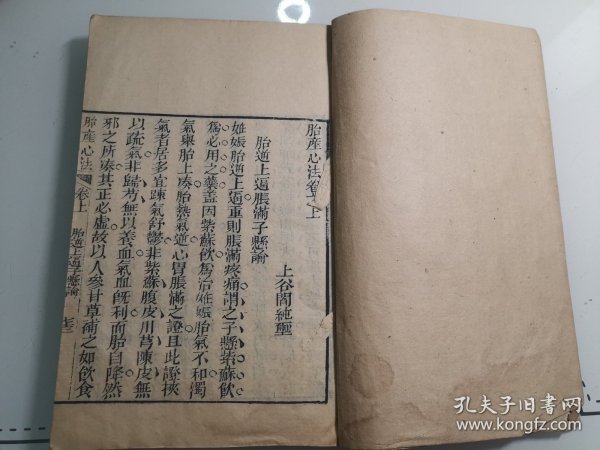 胎産心法卷之上
上谷閻純璽
胎逆上逼脹滿子懸論
姙娠胎逆上逼重則脹滿疼痛謂之子懸紫蘇飲
爲必用之藥葢因紫蘇飲爲治姙娠胎氣不和濁
氣舉胎上湊胎熱氣逆心胃脹滿之證且此證挾
氣者居多宜疎氣舒鬱非紫蘇腹皮川芎陳皮無
以疏氣非歸芍無以養血氣血旣利而胎自降然
邪之所湊其正必虛故以人參甘草補之如飮食
胎産心法 卷上 胎逆上逼子懸論
孔夫子旧书网
www.kongfz.com